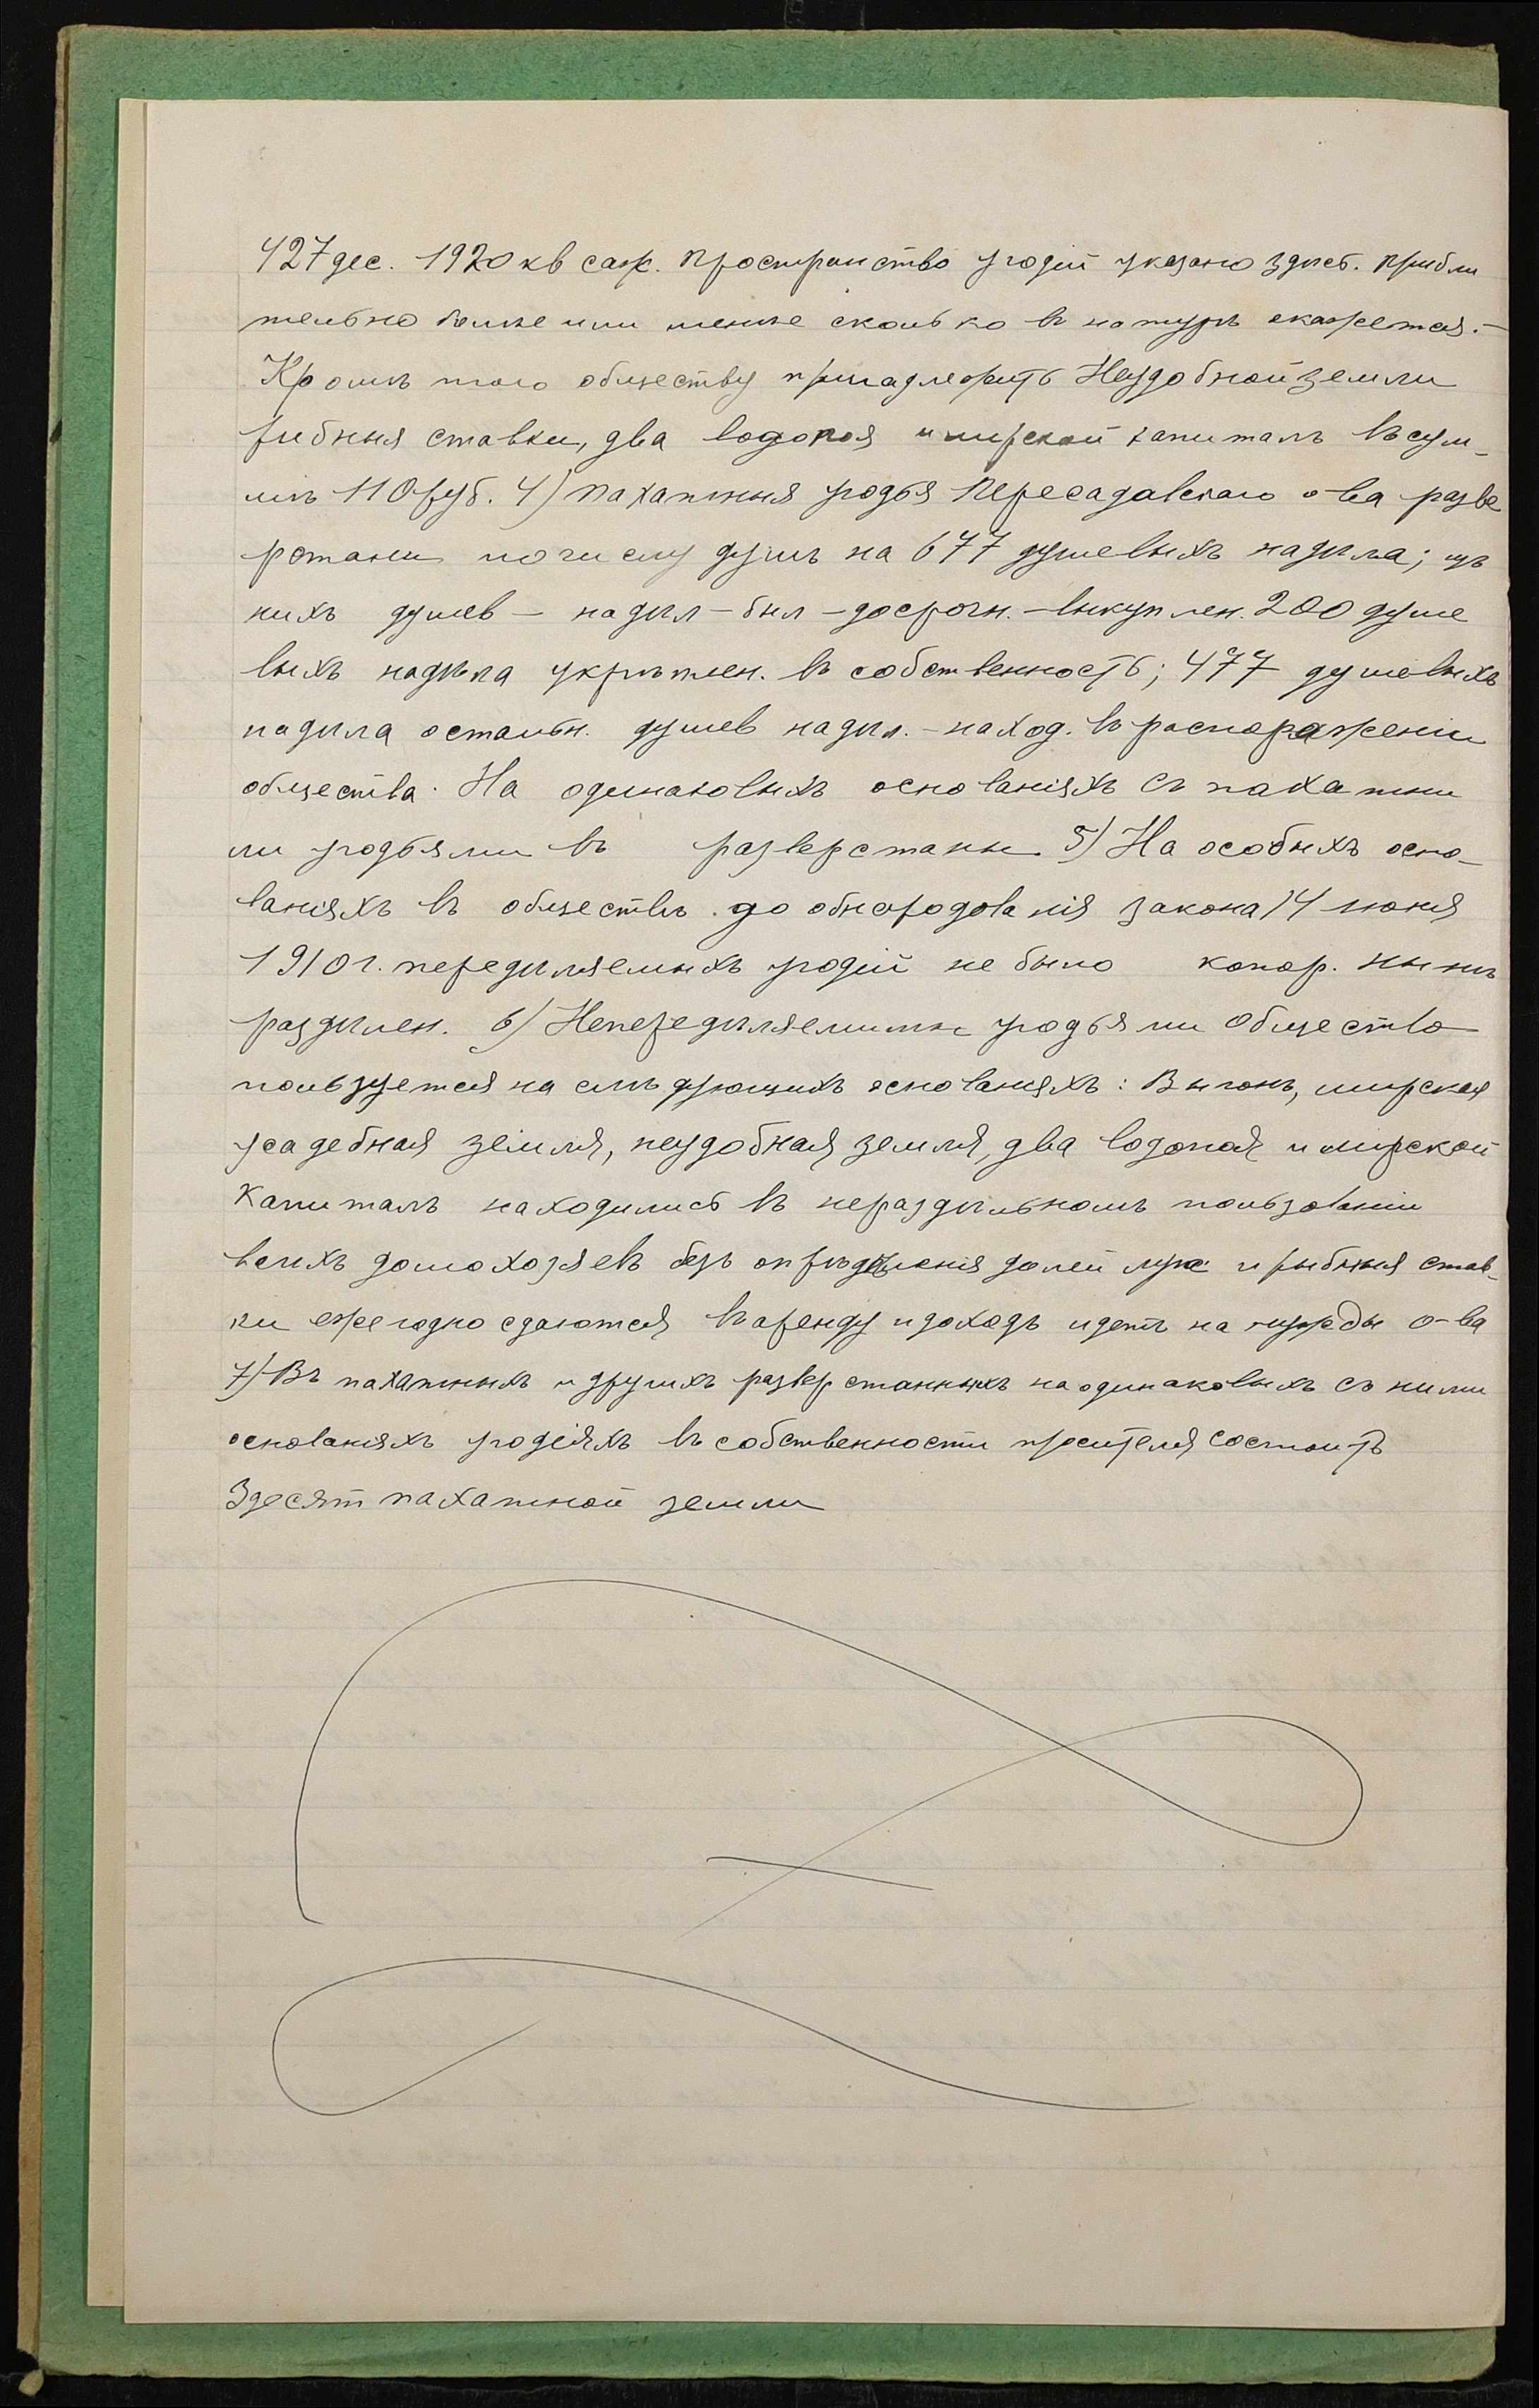 427 дес. 1920 кв саж. Пространство угодій указано здѣсь. прибли
тельно болѣе или менѣе сколько въ натурѣ окажется.—
Кромѣ того обществу принадлежитъ Неудобной земли
рыбныя ставки, два водопоя и мирской капиталъ въ сум-
мѣ 110 руб. 4) Пахатныя угодья Пересадовскаго о-ва разве
рстаны по числу душъ на 677 душевыхъ надѣла; изъ
нихъ душев — надѣл — был — досрочн. — выкуплен. 200 душе
выхъ надѣла укрѣплен. въ собственность; 477 душевыхъ
надѣла остальн. душев надѣл. — наход. въ распоряженіи
общества. На одинаковыхъ основаніяхъ съ пахатны
ми угодьями въ разверстаны 5) На особыхъ осно-
ваніяхъ въ обществѣ до обнародованія закона 14 июня
1910 г. передѣляемыхъ угодій не было котор. нынѣ
раздѣлен. 6) Непередѣляемыми угодьями Общество
пользуется на слѣдующихъ основаніяхъ: Выгонъ, мирская
усадебная земля, неудобная земля, два водопоя и мирской
капиталъ находились въ нераздѣльномъ пользованіи
всѣхъ домохозяевъ безъ опредѣленія долей и рыбныя став-
ки ежегодно сдаются въ аренду и доходъ идетъ на нужды о-ва
7) Въ пахатныхъ и другихъ разверстанныхъ на одинаковыхъ съ ними
основаніяхъ угодіяхъ въ собственности просителя состоитъ
3 десят пахатной земли